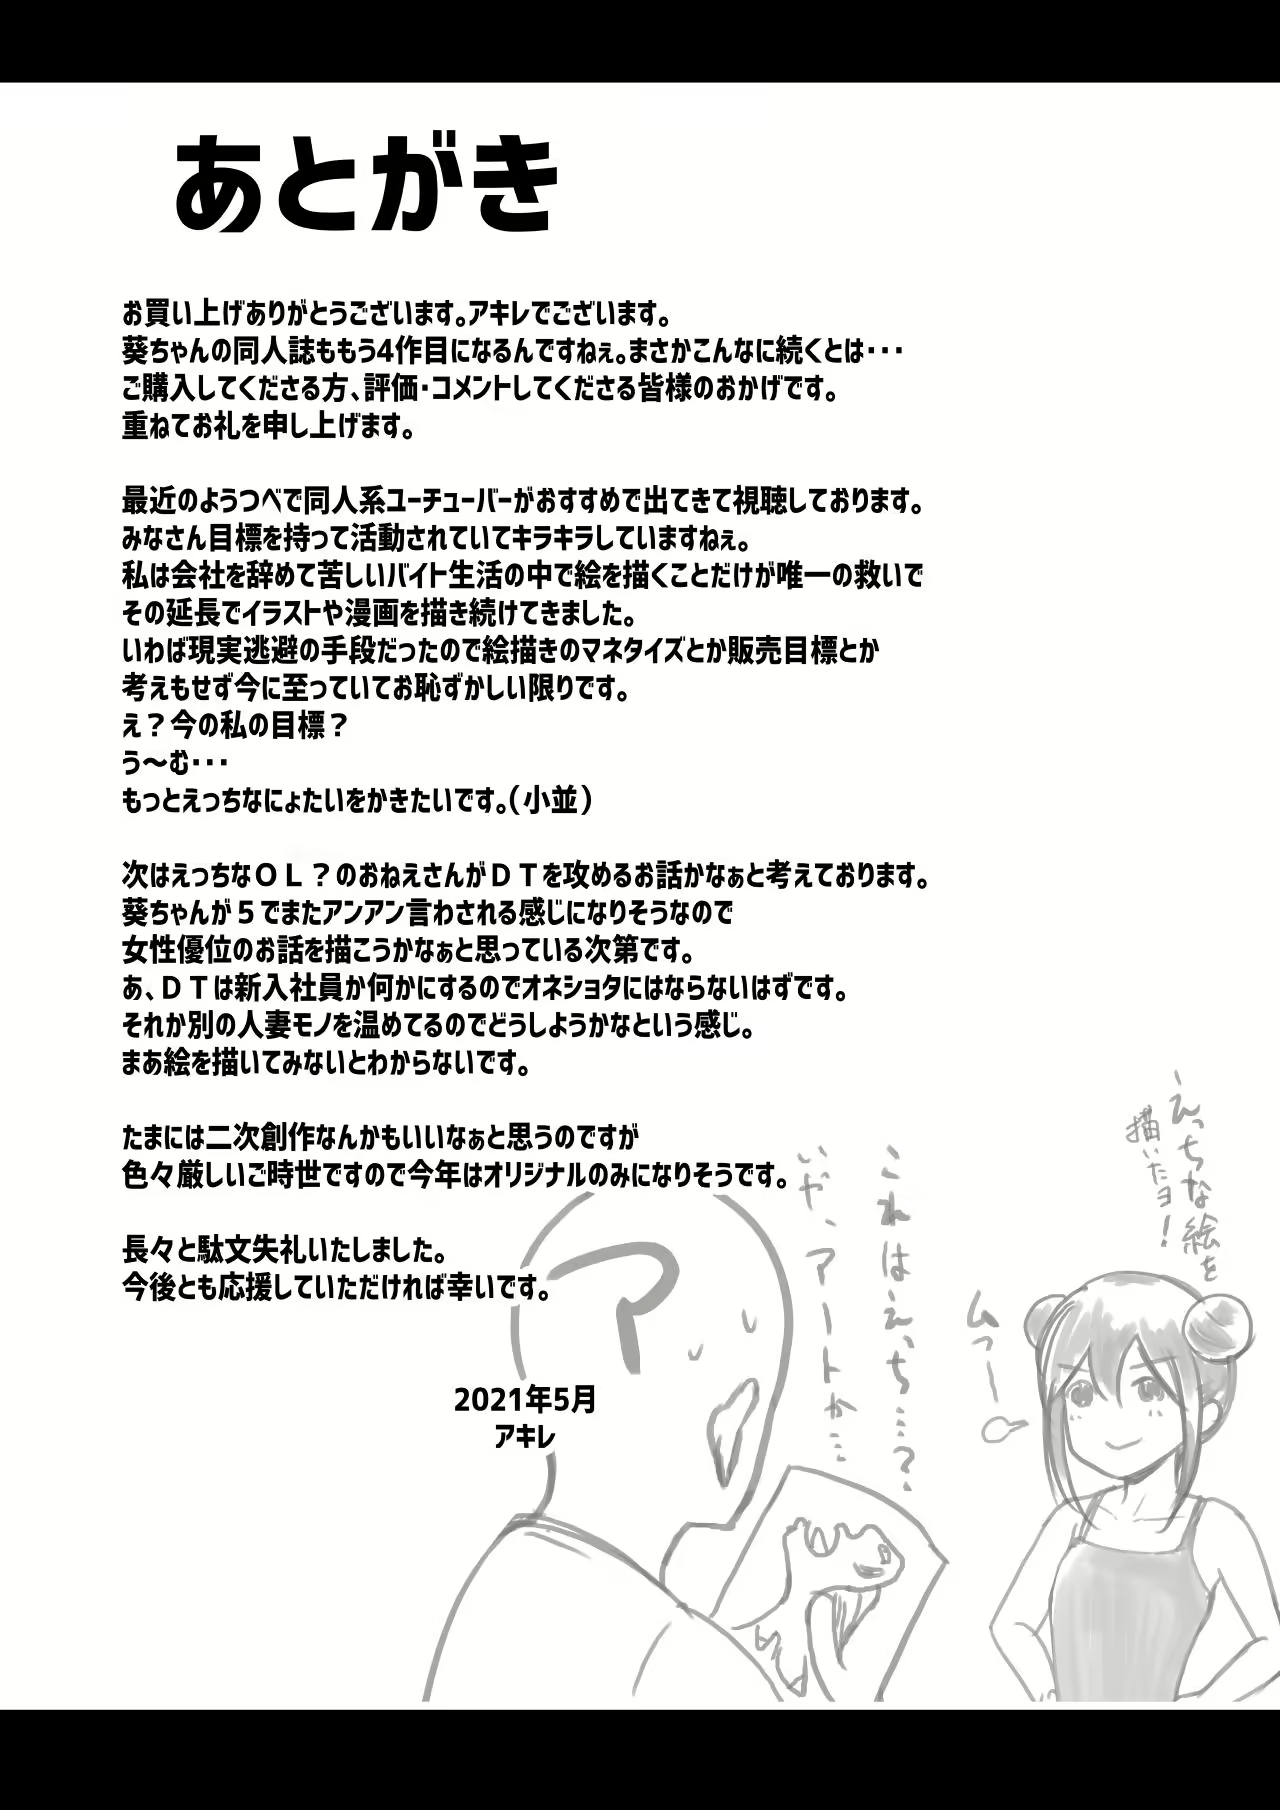 あとがき
お買い上げありがとうございます。アキレでございます。
葵ちゃんの同人誌ももう4作目になるんですねぇ。まさかこんなに続くとは・・・
ご購入してくださる方、評価・コメントしてくださる皆様のおかげです。
重ねてお礼を申し上げます。
最近のようつべで同人系ユーチューバーがおすすめで出てきて視聴しております。
みなさん目標を持って活動されていてキラキラしていますねぇ。
私は会社を辞めて苦しいバイト生活の中で絵を描くことだけが唯一の救いで
その延長でイラストや漫画を描き続けてきました。
いわば現実逃避の手段だったので絵描きのマネタイズとか販売目標とか
考えもせず今に至っていてお恥ずかしい限りです。
え？今の私の目標？
う〜む・・・
もっとえっちなにょたいをかきたいです。（小並）
次はえっちなＯＬ？のおねえさんがＤＴを攻めるお話かなぁと考えております。
葵ちゃんが５でまたアンアン言わされる感じになりそうなので
女性優位のお話を描こうかなぁと思っている次第です。
あ、ＤＴは新入社員か何かにするのでオネショタにはならないはずです。
それか別の人妻モノを温めてるのでどうしようかなという感じ。
まあ絵を描いてみないとわからないです。
たまには二次創作なんかもいいなぁと思うのですが
色々厳しいご時世ですので今年はオリジナルのみになりそうです。
長々と駄文失礼いたしました。
今後とも応援していただければ幸いです。
2021年5月
アキレ
えっちな絵を
描いたヨ！
ムフー
これはえっち…？
いや、アートか…
ア